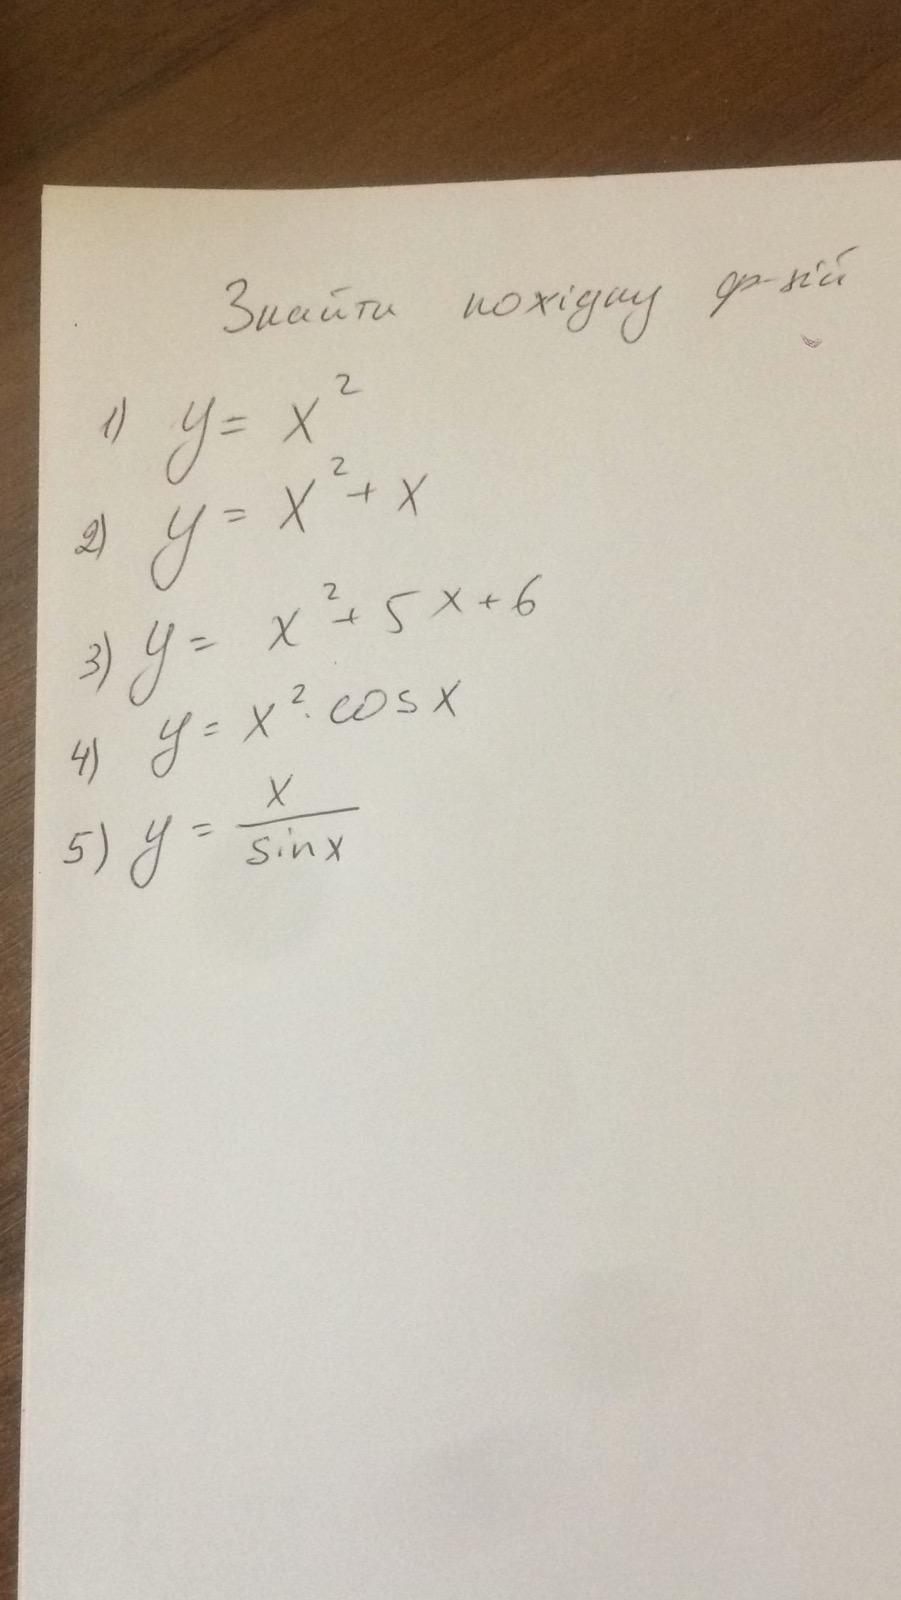 Знайти похідну ф-ній
1) y = x²
2) y = x² + x
3) y = x² + 5x + 6
4) y = x² · cos x
5) y = x / sin x